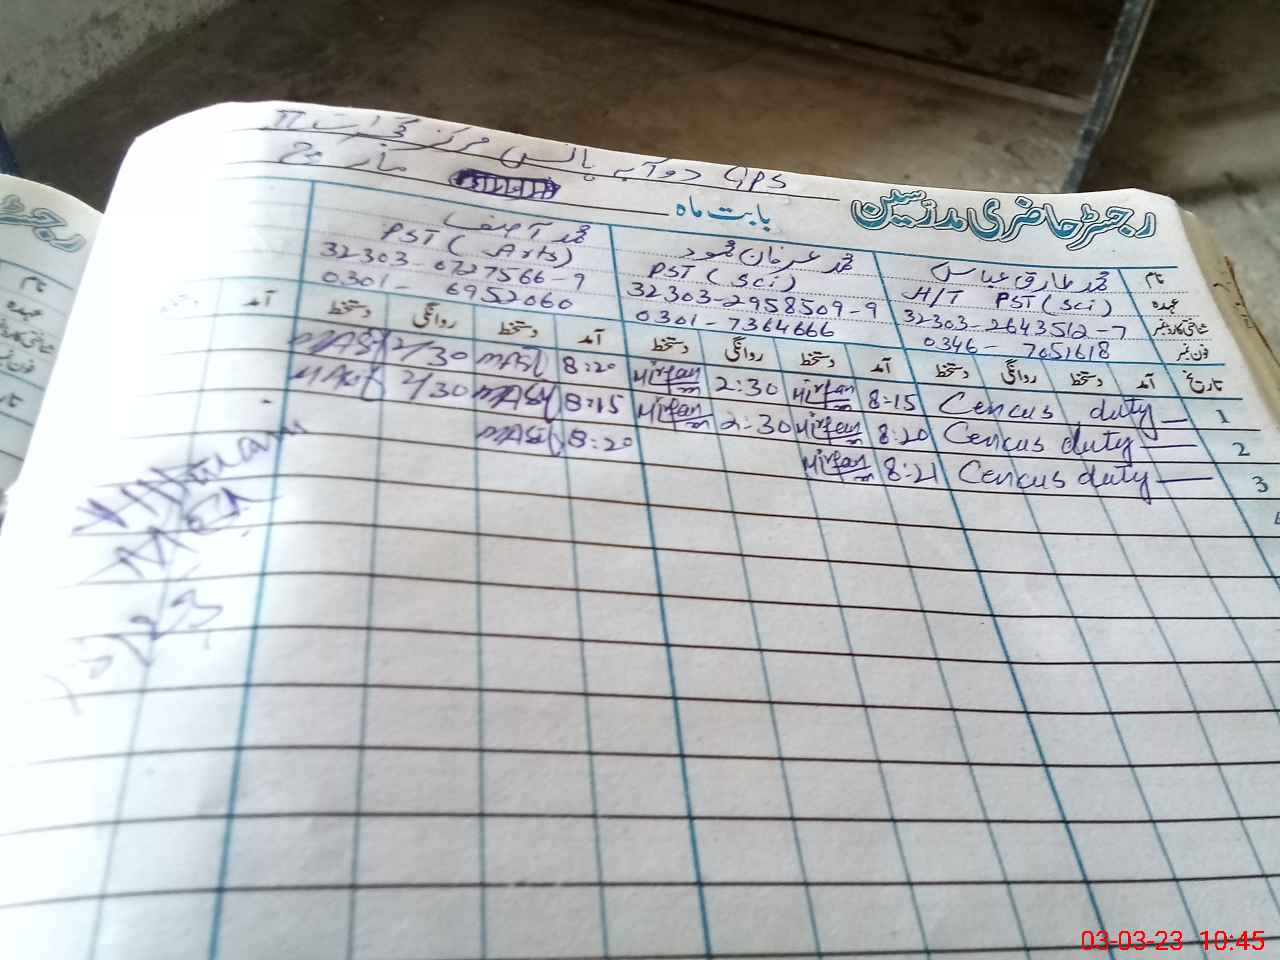 GPS دوآبہ بانس مرکز گجرات II
رجسٹر حاضری مدرسین بابت ماہ مارچ
نام محمد طارق عباس محمد عرفان محمود محمد آصف
عہدہ H/T PST (Sci) PST (Sci) PST (Arts)
شناختی کارڈ نمبر 32303-2643512-7 32303-2958509-9 32303-0727566-9
فون نمبر 0346-7651618 0301-7364666 0301-6952060
تاریخ آمد دستخط روانگی دستخط آمد دستخط روانگی دستخط آمد دستخط روانگی دستخط آمد
1 Cencus duty 8:15 Mirfan 2:30 Mirfan 8:20 2/30
2 Cencus duty 8:20 Mirfan 2:30 Mirfan 8:15 2/30
3 Cencus duty 8:21 Mirfan 8:20
03-03-23 10:45